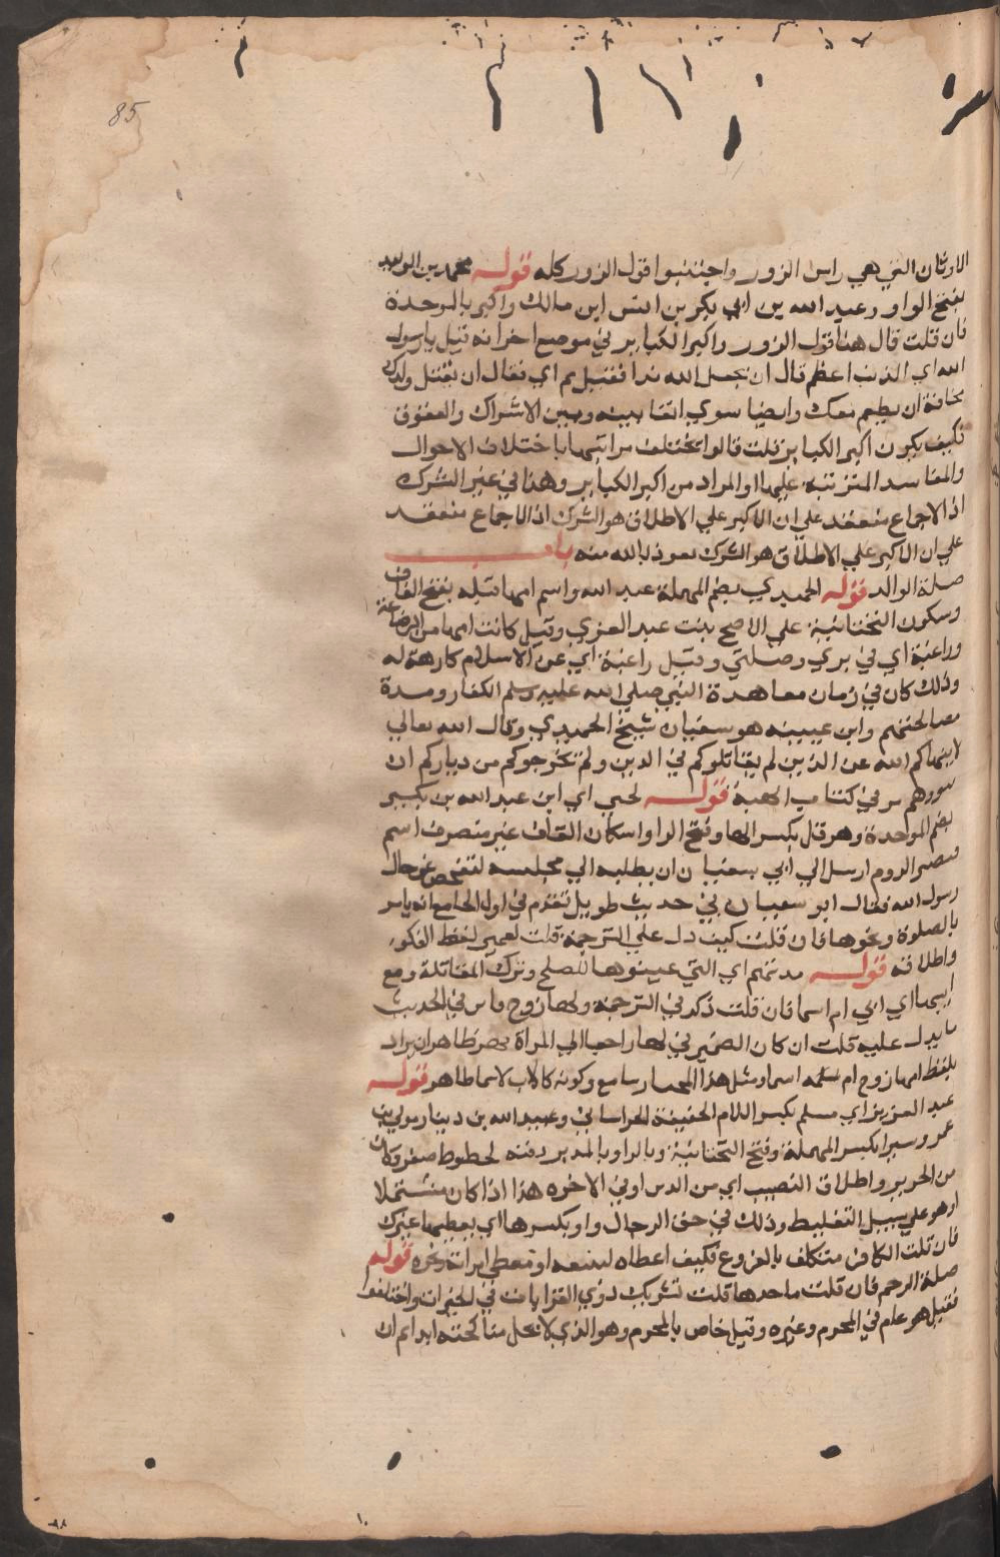 85
الاوثان التي هي راس الزور واجتنبوا قول الزور كله قوله محمد بن الوليد
بفتح الواو وعبيد الله بن ابي بكر بن انس ابن مالك واكبر بالموحدة
فان قلت قال هنا قول الزور واكبر الكباير في موضع اخر انه قيل يا رسول
الله اي الذنب اعظم قال ان تجعل لله ندا فقيل ثم اي فقال ان تقتل ولدك
مخافة ان يطعم معك وايضا سوي انفا بينه وبين الاشراك والعقوق
فكيف يكون اكبر الكباير قلت قالوا تختلف مراتبها باختلاف الاحوال
والمفاسد المترتبة عليها او المراد من اكبر الكباير وهذا في غير الشرك
اذ الاجماع منعقد علي ان الاكبر علي الاطلاق هو الشرك اذ الاجماع منعقد
علي ان الاكبر علي الاطلاق هو الشرك نعوذ بالله منه باب
صلة الوالد قوله الحميدي بضم المهملة عبد الله واسم امها قتيله بفتح القاف
وسكون التحتانية علي الاصح بنت عبد العزي وقيل كانت امها من الرضاعة
وراغبة اي في بري وصلتي وقيل راغبة اي عن الاسلام كارهة له
وذلك كان في زمان معاهدة النبي صلي الله عليه وسلم الكفار ومدة
مصالحتهم وابن عيينه هو سفيان شيخ الحميدي وقال الله تعالي
لا ينهاكم الله عن الذين لم يقاتلوكم في الدين ولم يخرجوكم من دياركم ان
تبروهم مر في كتاب الهبة قوله يحيي اي ابن عبد الله بن بكير
بضم الموحدة وهرقل بكسر الها وفتح الرا واسكان القاف غير منصرف اسم
قيصر الروم ارسل الي ابي سفيان ان يطلبه الي مجلسه لتفحص عن حال
رسول الله فقال ابو سفيان في حديث طويل تقدم في اول الجامع انه يامر
بالصلوة ونحوها فان قلت كيف دل علي الترجمة قلت لعموم لفظ المذكور
واطلاقه قوله مدتهم اي التي عينوها للصلح وترك المقاتلة ومع
ابيها اي ابي ام اسما فان قلت ذكر في الترجمة ولها زوج فاين في الحديث
ما يدل عليه قلت ان كان الضمير في لها راجعا الي المراة فهو ظاهر ان يراد
بلفظ ابيها زوج ام اسماء ومثل هذا المجاز سايغ وكونه كالاب لاسما ظاهر قوله
عبد العزيز اي مسلم بكسر اللام الخفيفة الخراساني وعبد الله بن دينار مولي بن
عمر وسيرا بكسر المهملة وفتح التحتانية وبالراو بالمد برد فيه خطوط صفر وكان
من الحرير واطلاق النصيب اي من الدين او في الاخره هذا اذا كان مستحلا
او هو علي سبيل التغليظ وذلك في حق الرجال واو يكسرها اي يعطيها غيرك
فان قلت الكافر متكلف بالفروع فكيف اعطاه ليبيعه او يعطي امراته ونحوه قوله
صلة الرحم فان قلت ما حدها قلت تشريك ذوي القرابات في الخيرات واختلفوا
فقيل هو عام في المحرم وغيره وقيل خاص بالمحرم وهو الذي لا يحل مناكحته ابدا ثم ان